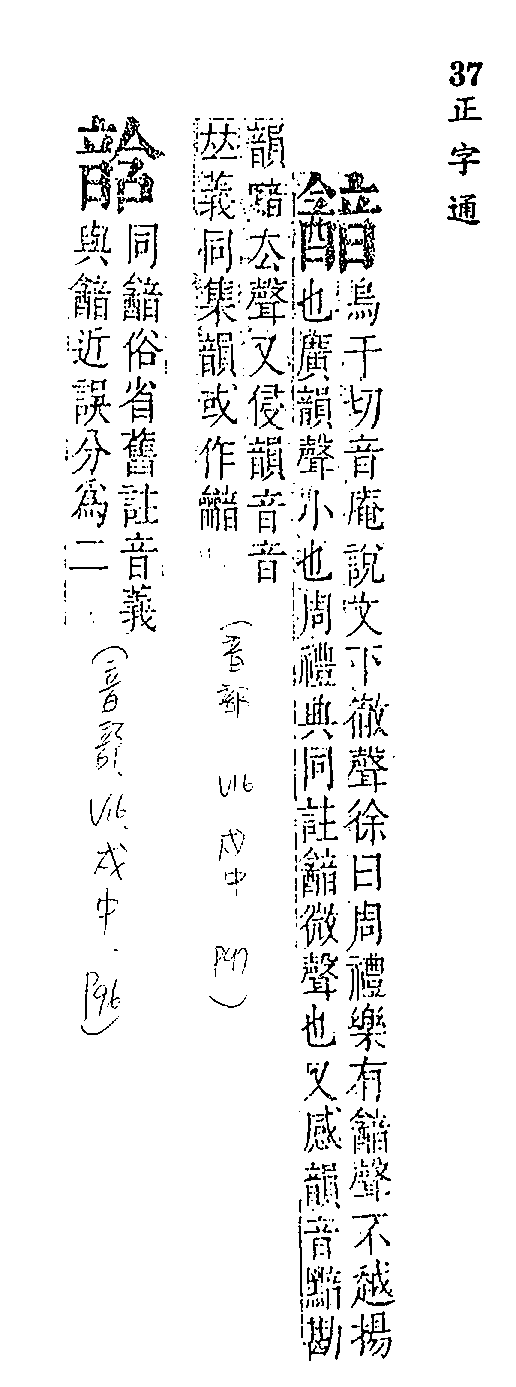 37正字通
韽烏干切音庵說文下徹聲徐曰周禮樂有韽聲不越揚
也廣韻聲小也周禮典同註韽微聲也又感韻音黯勘
韻黯去聲又侵韻音音
𠀤義同集韻或作
(音部 V16 戌中 P97)
同韽俗省舊註音義
與韽近誤分為二
(音部、V16、戌中、P96)